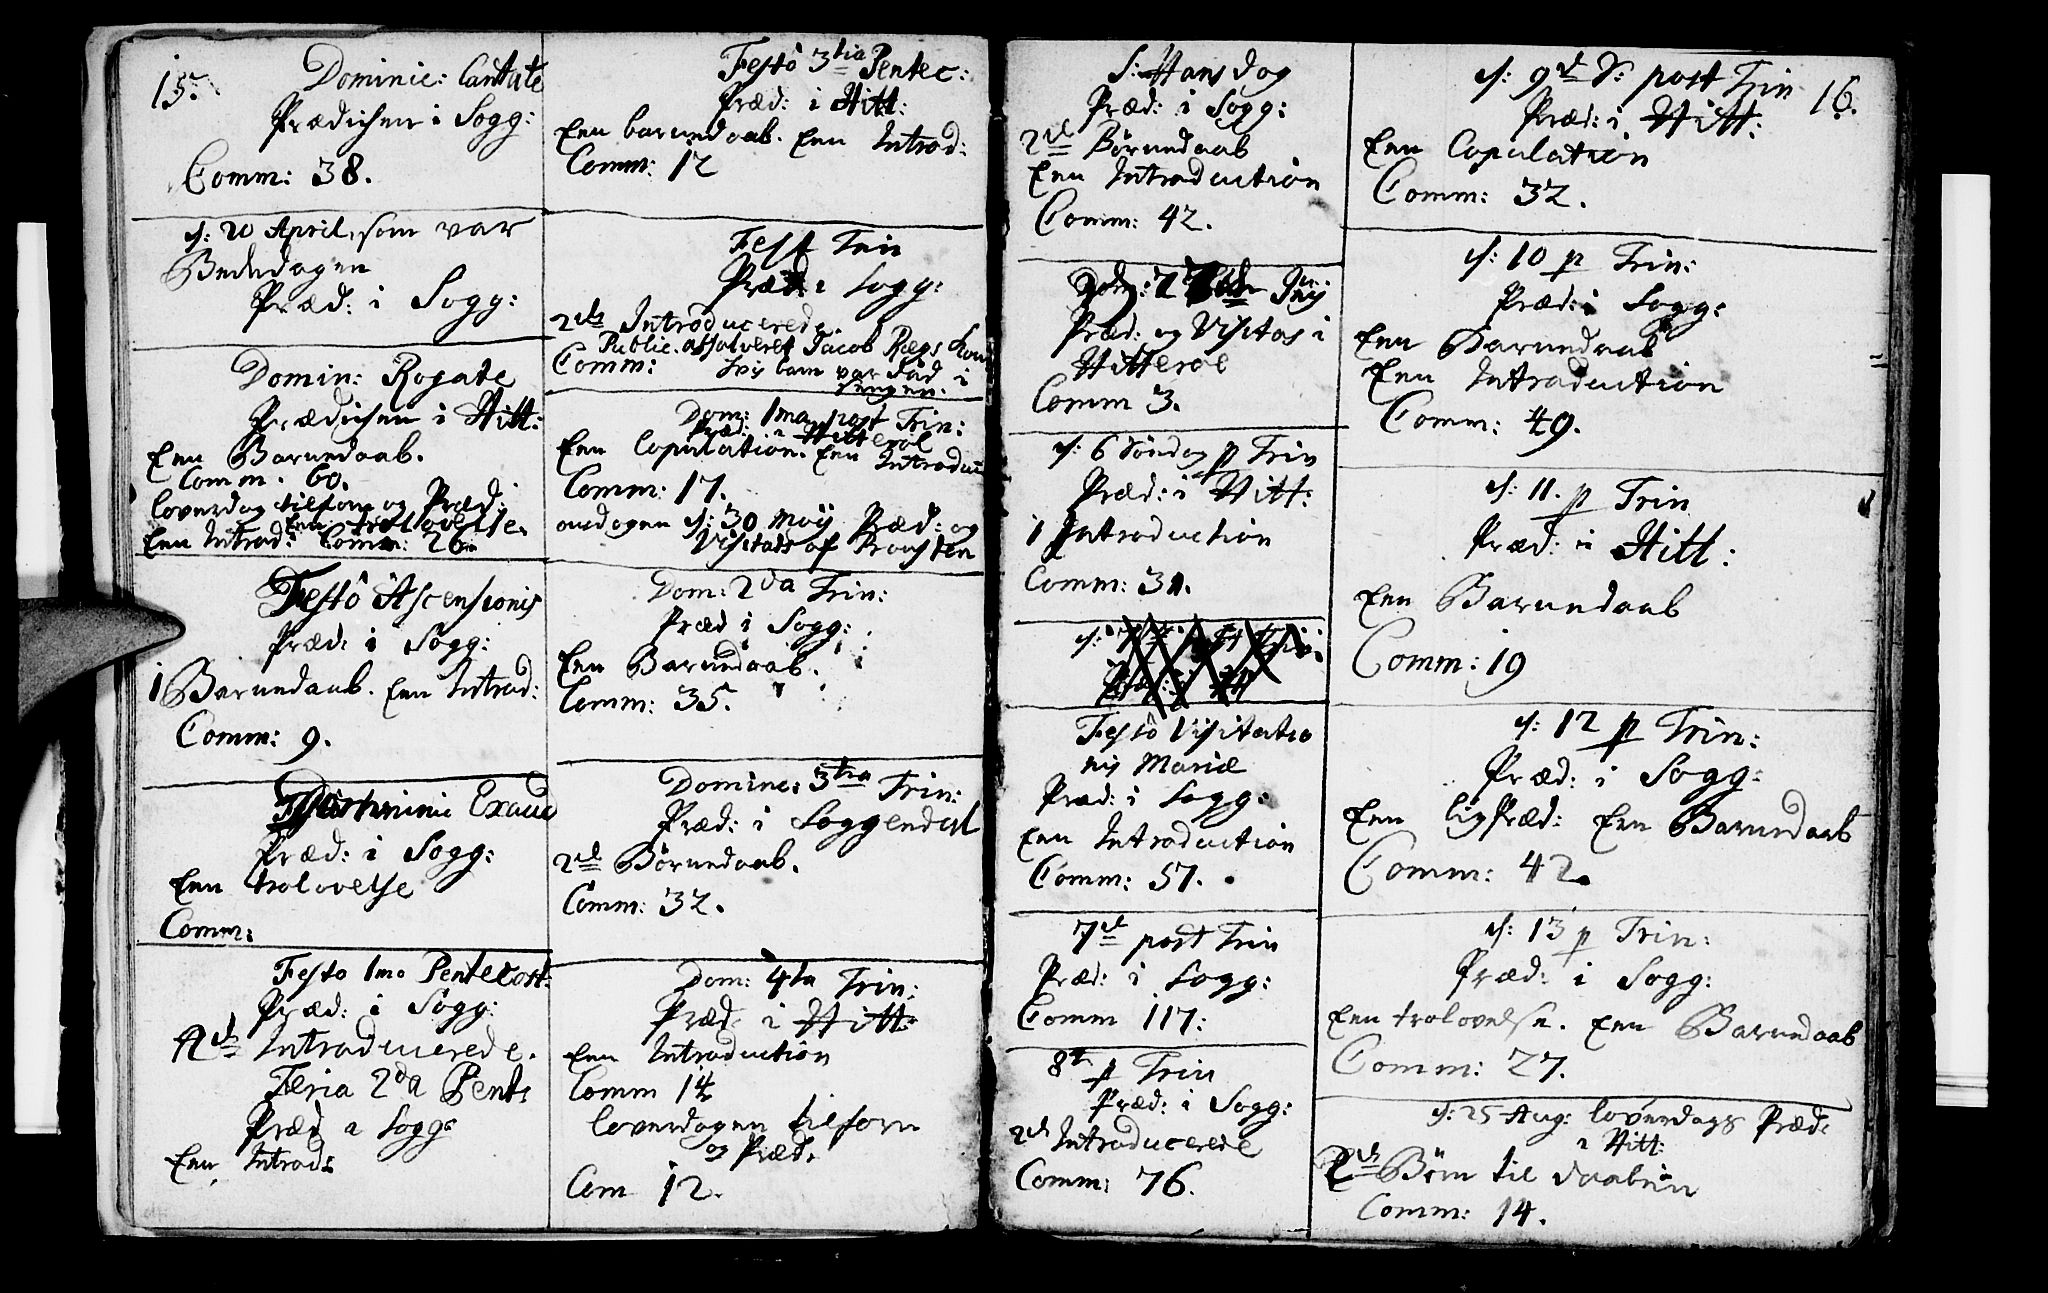 15.
Dominic: Cantate
Prædichen i Sogg:
Comm: 38.
d: 20 April, som var
Bededagen
Præd: i Sogg:
Domin: Rogate
Prædichen i Hitt:
Een Barnedaab.
Comm. 60.
løverdag tilforn og Præd:
Een trolovelse.
Een Introd: Comm: 26.
Festo Ascensionis
Præd: i Sogg:
1 Barnedaab. Een Introd:
Comm: 9.
Dominic Exaud
Præd: i Sogg:
Een trolovelse
Comm:
Festo 1mo Pentecost:
Præd: i Sogg:
Introducerede.
Feria 2da Pent:
Præd i Sogg:
Een Introd:
Festo 3tia Pentec:
Præd: i Hitt:
Een barnedaab. Een Introd:
Comm: 12
Fest Trin
Præd: i Sogg:
2de Introducerede.
Public: absolveret Jacob Rægs Kone
Comm: hvis barn var død i
sengen.
Dom: 1ma post Trin:
Præd: i Hitterøe
Een Copulation. Een Introduc
Comm: 17.
onsdagen d: 30 Maij Præd: og
Visitats af Prousten
Dom: 2da Trin:
Præd i Sogg:
Een Barnedaab.
Comm: 35.
Dominc: 3tia Trin:
Præd: i Soggendal
2de Børnedaab.
Comm: 32.
Dom: 4ta Trin:
Præd i Hitt:
Een Introduction
Comm 14
løverdagen tilforn
og Præd.
Com 12.
S: Hans dag
Præd: i Sogg:
2de Børnedaab
Een Introduction
Comm: 42.
Præd: og Visitas i
Hitterøe
Comm 3.
d: 6 Søndag p Trin
Præd: i Hitt:
1 Introduction
Comm: 31.
Festo Visitatio
nis Mariæ
Præd: i Sogg:
Een Introduction
Comm: 57.
7de post Trin
Præd: i Sogg:
Comm 117:
8de p Trin
Præd: i Sogg:
2de Introducerede
Comm: 76.
16.
d: 9de S: post Trin
Præd: i Hitt:
Een Copulation
Comm: 32.
d: 10 p Trin:
Præd: i Sogg:
Een Barnedaab
Een Introduction
Comm: 49.
d: 11. p Trin
Præd: i Hitt:
Een Barnedaab
Comm: 19
d: 12 p Trin:
Præd: i Sogg:
Een ligpræd: Een Barnedaab
Comm: 42.
d: 13 p Trin:
Præd: i Sogg:
Een trolovelse. Een Barnedaab
Comm: 27.
d: 25 Aug: løverdags Præd:
i Hitt:
2de Børn til daaben
Comm: 14.